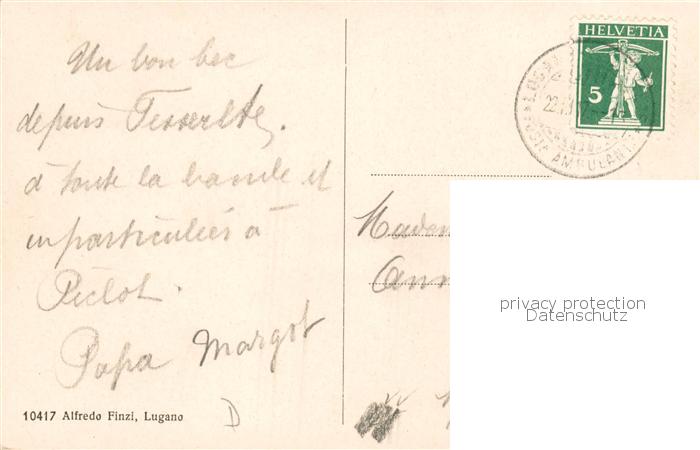 Un bon bec
depuis
à toute la bande et
en particulier à
Papa Margot
10417 Alfredo Finzi, Lugano
D
HELVETIA
5
AMBULANT
privacy protection
Datenschutz